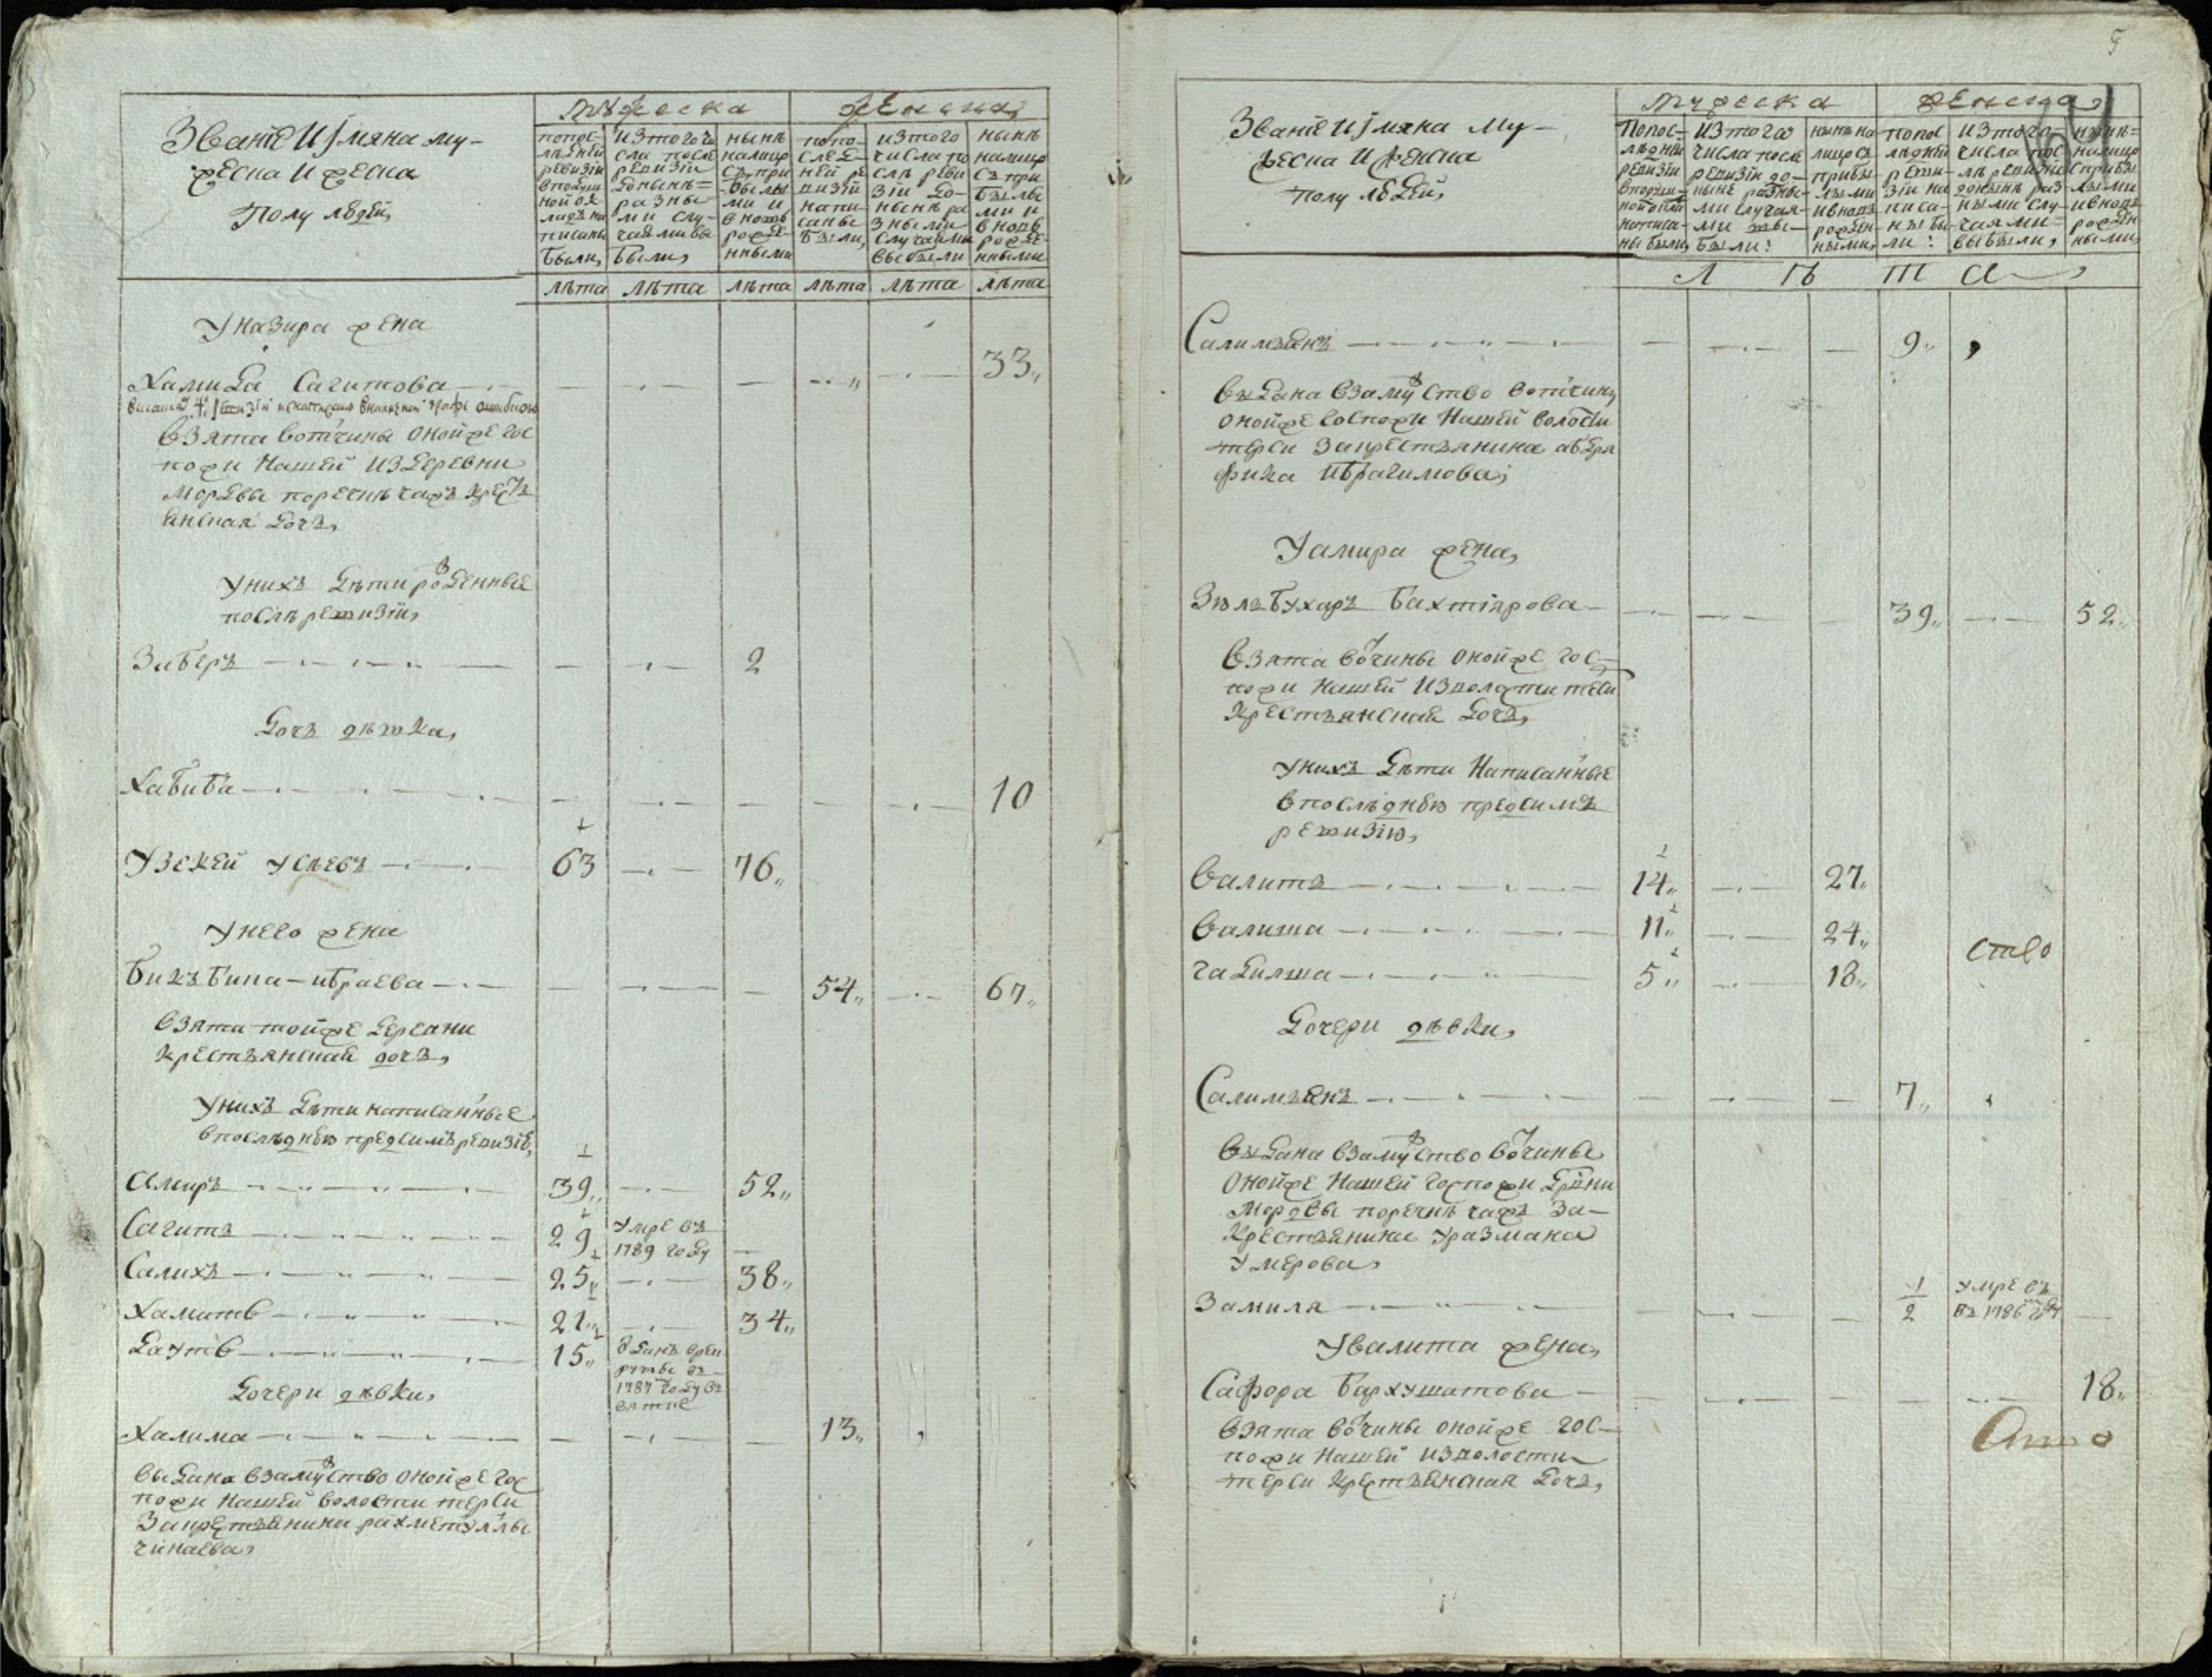 Званiе И Імяна му-
жеска И жеска
Полу людей,
мужеска
женска,
попос-
лѣдней
ревизiи
вподуш
ной ок
ладъ на
писаны
были,
изтогочи
сла после
ревизiи
доныне=
разны
ми слу-
чаями вы
были,
нынѣ
налицо
съ при
былы
ми и
вновь
рожде-
нными
попо-
след-
ней ре
визiи
напи-
саны
были,
изтого
числа по
слѣ реви
зiи до-
нынѣ ра
зными
случаями
выбыли
нынѣ
налицо
съ при
былы
ми и
вновь
рожде-
нными
лѣта лѣта лѣта лѣта лѣта лѣта
У назира жена
Хамида Сагитова 33
взята вотчины онойже гос
пожи Нашей издеревни
Мордвы поречнѣ чажъ крестъ
янская дочь,
Унихъ дѣти рожденные
послѣ ревизiи,
Заберъ 2
дочь дѣвка,
Хабиба 10
Узекей Усѣевъ 63 76
Унего жена
Бикъбика ибраева 54 67
взята тойже деревни
крестьянская дочь,
Унихъ дѣти написанные
впослѣднюю предсимъ ревизiю,
Амиръ 39 52
Сагитъ 29 умре въ
1789 году
Салихъ 25 38
Хамитъ 21 34
Даутъ 15 Зданъ врек
руты въ
1787 году въ
дочери дѣвки,
Халима 13
выдана взамужство онойже гос
пожи Нашей волости терси
Закрестьянина рахметуллы
чинаева,
5
Званiе И Імяна Му-
жеска И женска
полу людей,
мужеска
женска,
Попос-
лѣдней
ревизiи
вподуш-
ной окла
написа-
ны были,
изтого
числа после
ревизiи до-
ныне разны-
ми случая-
ми вы-
были:
нынѣ на
лицо съ
прибы-
лыми
ивновь
рожден-
ными,
попос
лѣдней
реви-
зiи на
писа-
ны бы-
ли:
изтого
числа пос
лѣ ревизiи
донынѣ раз
ными слу-
чаями=
выбыли,
нынѣ=
налицо
сприбы
лыми
ивновь
рожден-
ными,
Л ѣ т а
Салимъянъ 9
выдана взамужство вотчины
онойже Госпожи Нашей волости
терси Закрестьянина абдря
фика ибрагимова,
Уамира жена,
Зюльбухаръ Бахтiярова 39 52
взята вотчины онойже гос-
пожи Нашей изволости терси
крестьянская дочь,
Унихъ дѣти Написанные
впослѣднюю предсимъ
ревизiю,
Валитъ 14 27
Валиша 11 24
Гадилша 5 18
ство
дочери дѣвки,
Салимъянъ 7
выдана взамужство вотчины
онойже Нашей госпожи дрвни
Мордвы поречнѣ чажъ за-
крестьянина Уразмана
Умерова,
Замиля 1/2 умре въ
въ 1786 году
Увалита жена,
Сафора Бархушатова 18
взята вотчины онойже гос-
пожи Нашей изволости
терси крестьянская дочь,